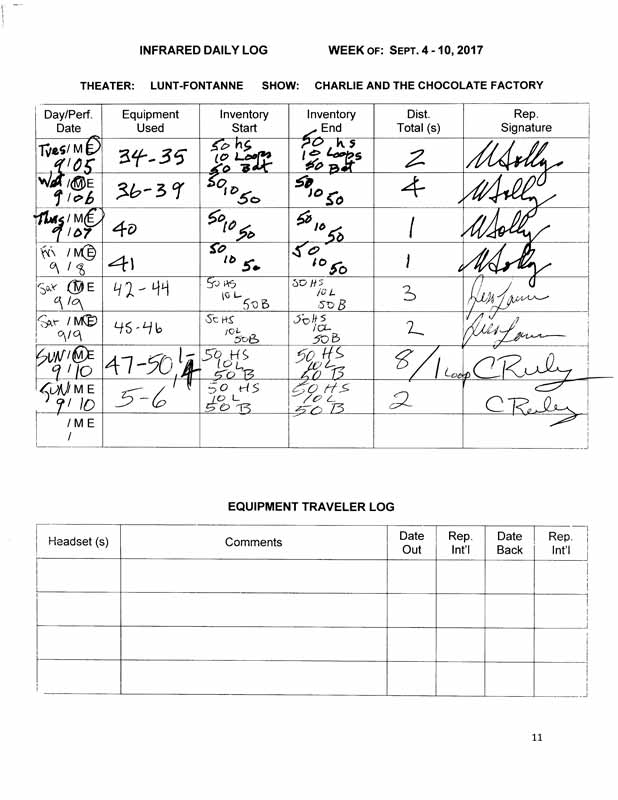 INFRARED DAILY LOG WEEK OF: SEPT. 4 - 10, 2017
THEATER: LUNT-FONTANNE SHOW: CHARLIE AND THE CHOCOLATE FACTORY
Day/Perf. Date Equipment Used Inventory Start Inventory End Dist. Total (s) Rep. Signature
Tues / M E 9/05 34-35 50 hs 10 Loops 50 Bat 50 hs 10 Loops 50 Bat 2
Wed / M E 9/06 36-39 50 10 50 50 10 50 4
Thurs / M E 9/07 40 50 10 50 50 10 50 1
Fri / M E 9/8 41 50 10 50 50 10 50 1
Sat / M E 9/9 42-44 50 HS 10 L 50 B 50 HS 10 L 50 B 3
Sat / M E 9/9 45-46 50 HS 10L 50B 50HS 10L 50B 2
SUN / M E 9/10 47-50, 1-4 50 HS 10 L 50 B 50 HS 10 L 50 B 8/1 Loop C Reily
SUN / M E 9/10 5-6 50 HS 10 L 50 B 50 HS 10 L 50 B 2 C Reiley
/ M E
/
EQUIPMENT TRAVELER LOG
Headset (s) Comments Date Out Rep. Int'l Date Back Rep. Int'l
11